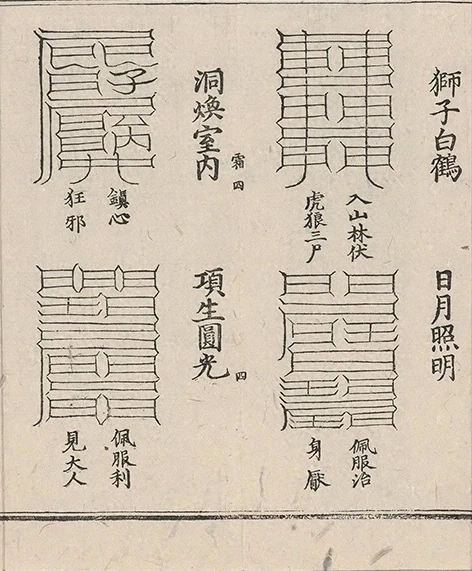 獅子白鶴
入山林伏
虎狼三尸
洞煥室內
霜四
鎮心
狂邪
日月照明
佩服治
身厭
項生圓光
四
佩服利
見大人